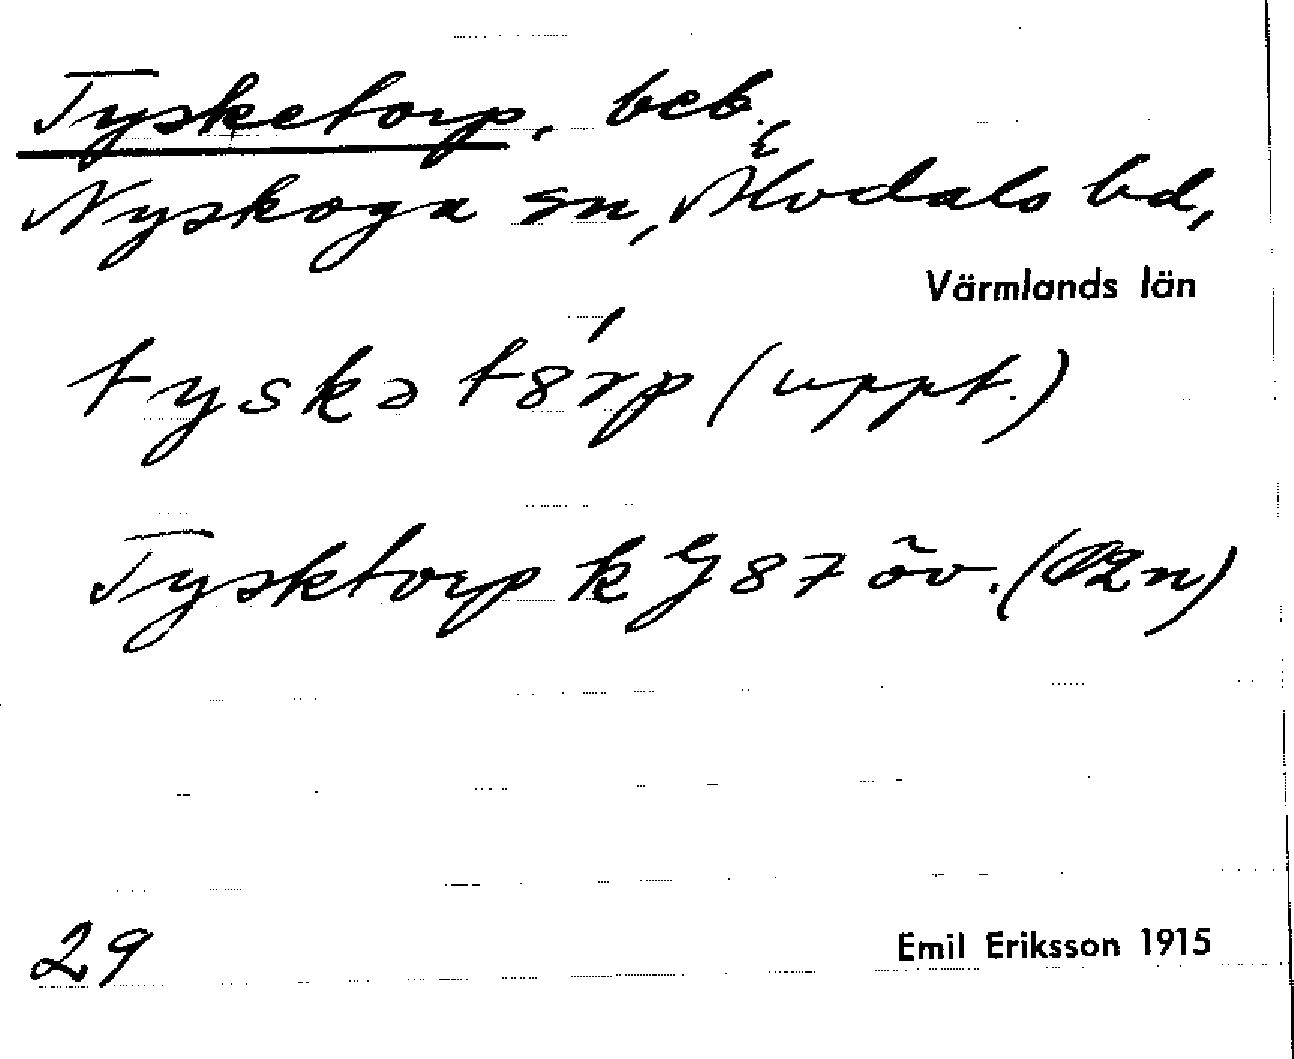 Tysketorp, beb.,
Nyskoga sn, Älvdals hd,
Värmlands län
tyskə t8́rp (uppt.)
Tysktorp k G 87 öv.
29
Emil Eriksson 1915